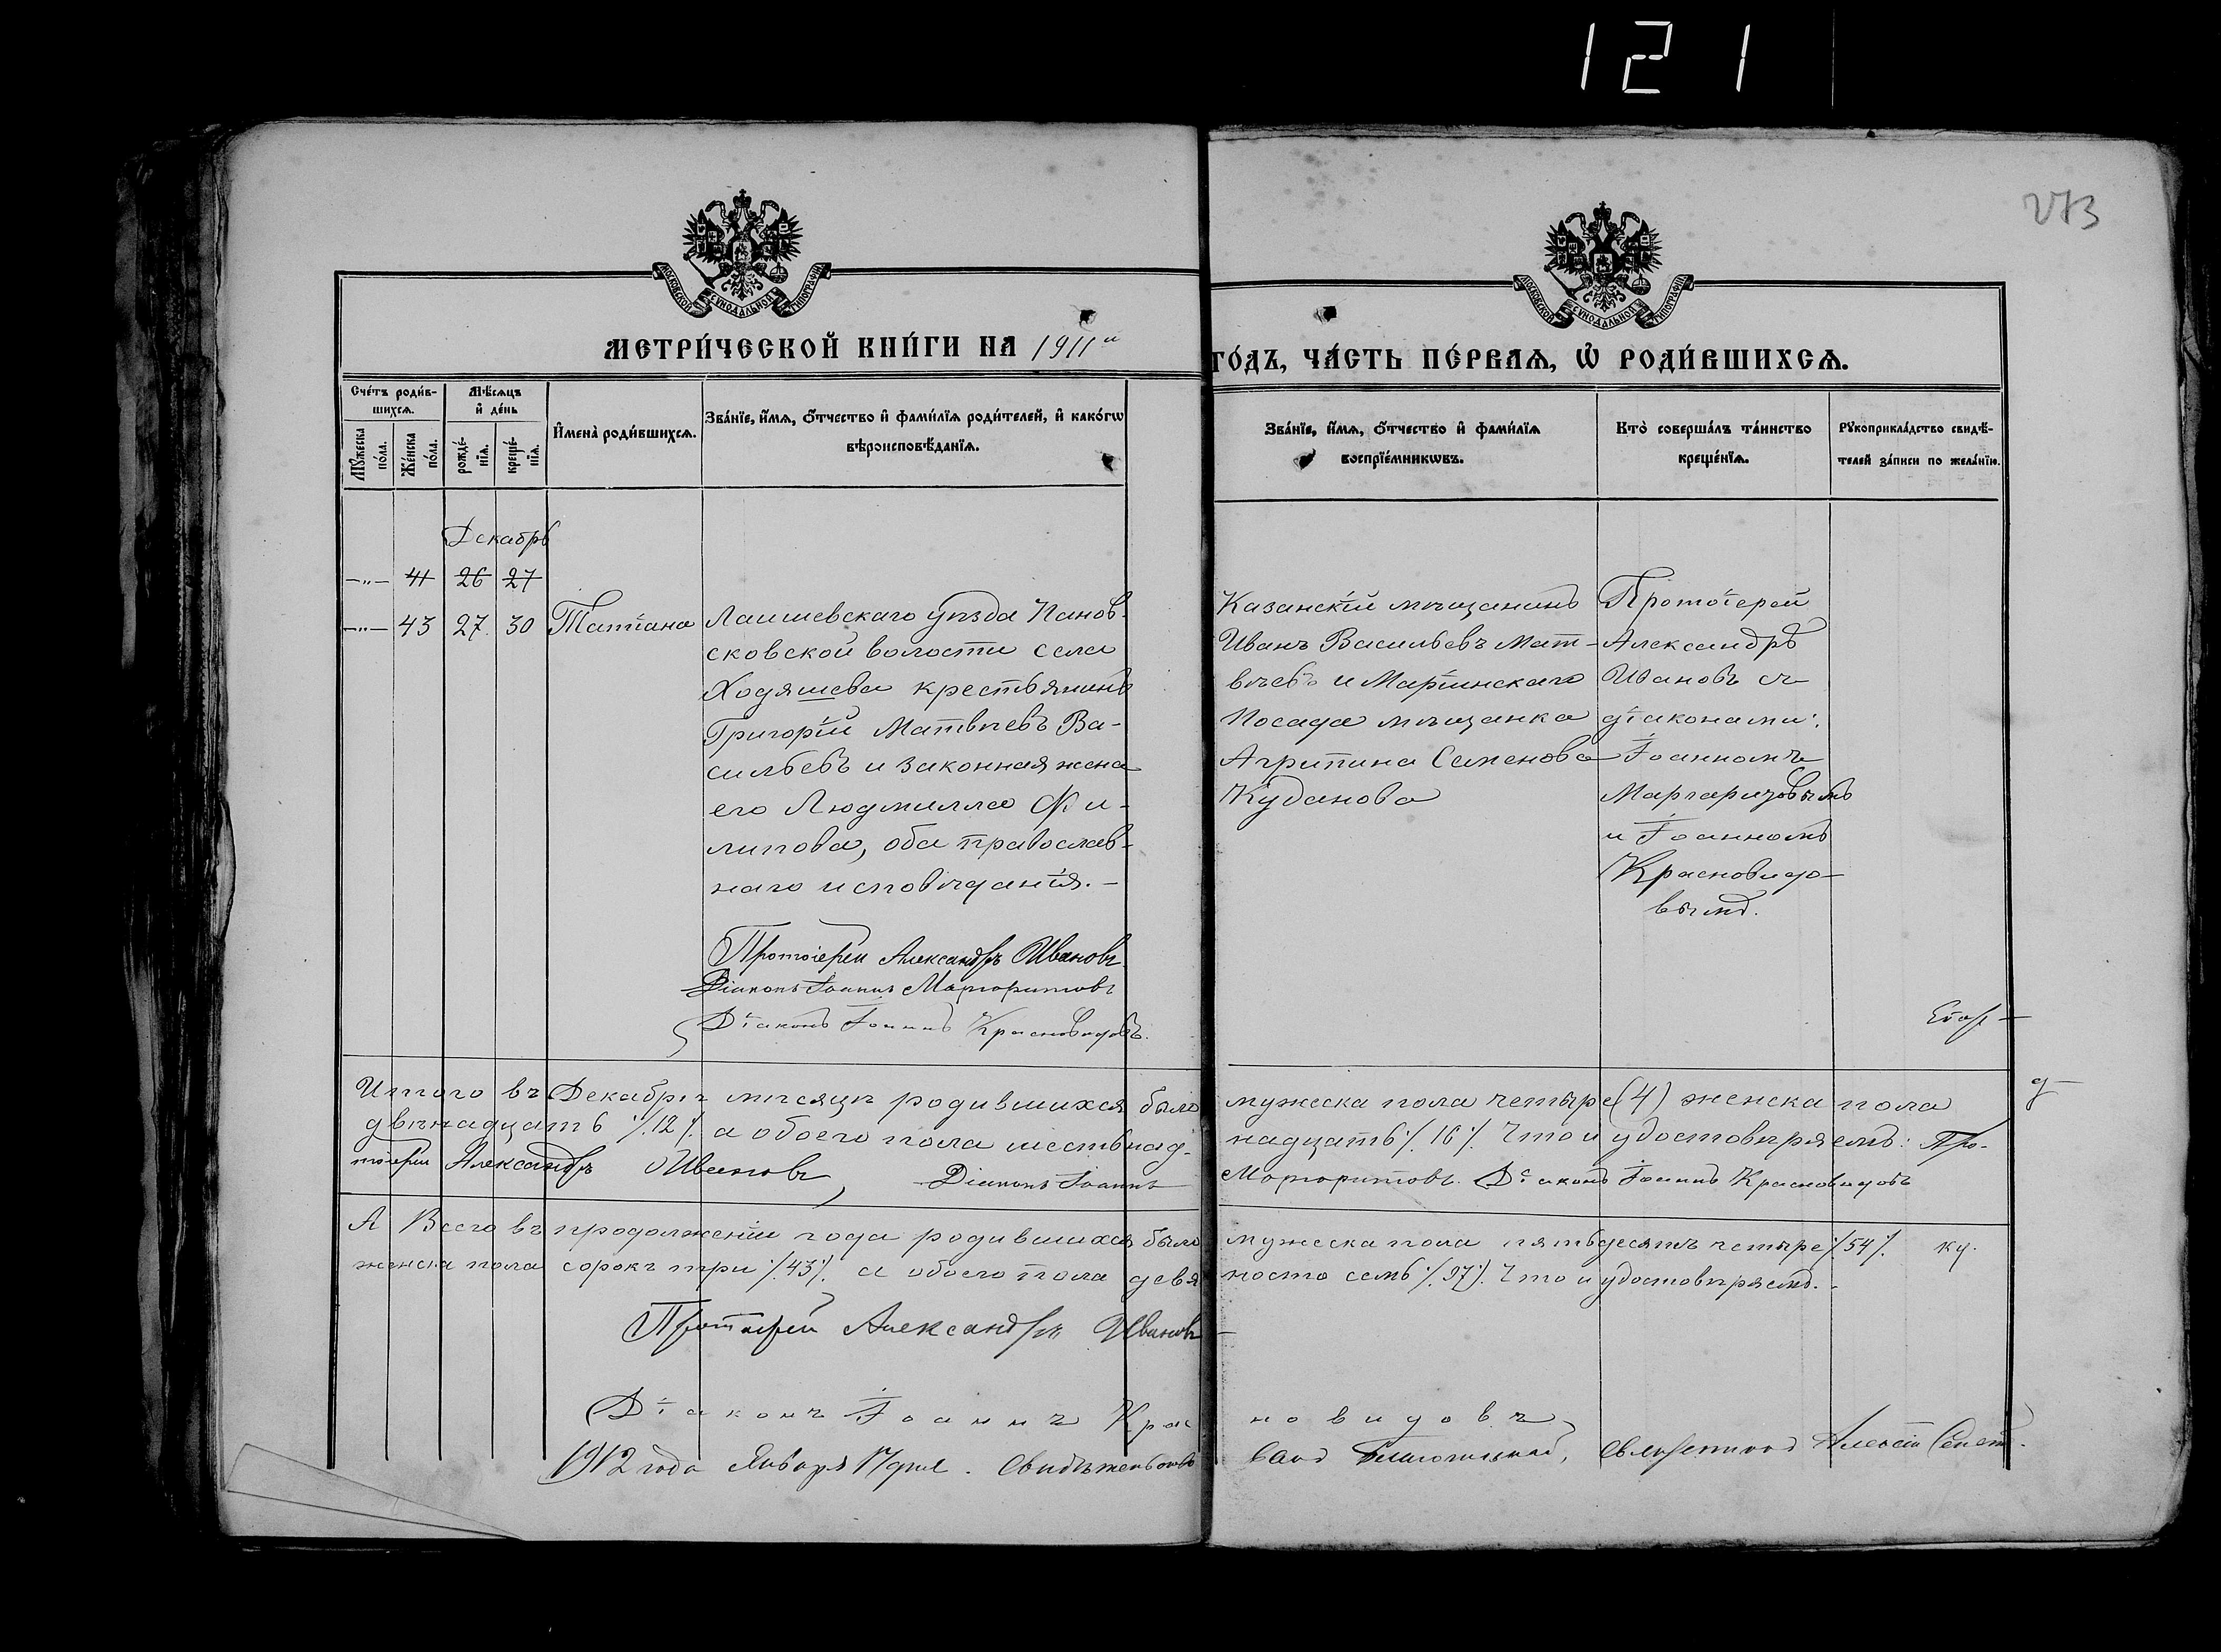 121
273
МОСКОВСКОЙ СѴНОДАЛЬНОЙ ТИПОГРАФІИ
МОСКОВСКОЙ СѴНОДАЛЬНОЙ ТИПОГРАФІИ
МЕТРИ́ЧЕСКОЙ КНИ́ГИ НА 1911й
ГО́ДЪ, ЧА́СТЬ ПЕ́РВАѦ, Ѡ҆ РОДИ́ВШИХСѦ.
Сче́тъ роди́в-
шихсѧ.
Мꙋ́жеска по́ла.
Же́нска по́ла.
Мѣ́сѧцъ
и҆ де́нь
рожде́-
нїѧ.
креще́-
нїѧ.
И҆мена̀ роди́вшихсѧ.
Зва́нїе, и҆́мѧ, ѻ҆́тчество и҆ фами́лїѧ роди́телей, и҆ како́гѡ
вѣроисповѣ́данїѧ.
Зва́нїе, и҆́мѧ, ѻ҆́тчество и҆ фами́лїѧ
воспрїе́мникѡвъ.
Кто̀ соверша́лъ та́инство
креще́нїѧ.
Рꙋкоприкла́дство свидѣ́-
телей за́писи по жела́нїю.
Декабрь
—„— 41 26 27
—„— 43 27. 30 Татіана
Лаишевскаго уѣзда Панов-
сковской волости села
Ходяшева крестьянинъ
Григорій Матвѣевъ Ва-
сильевъ и законная жена
его Людмилла Фи-
липова, оба православ-
наго исповѣданія.—
Казанскій мѣщанинъ
Иванъ Васильевъ Мат-
вѣевъ и Маріинскаго
Посада мѣщанка
Агрипина Семенова
Куданова
Протоіерей
Александръ
Ивановъ съ
діаконами:
Іоанномъ
Маргаритовымъ
и Іоанномъ
Красновидо-
вымъ.
Протоіерей Александръ Ивановъ.
Діаконъ Іоаннъ Маргаритовъ
Діаконъ Іоаннъ Красновидовъ.
Итого въ Декабрѣ мѣсяцѣ родившихся было мужеска пола четыре (4) женска пола
двѣнадцать ٪12٪ а обоего пола шестьнад- надцать ٪16٪ Что и удостовѣряемъ: Про-
тоіерей Александръ Ивановъ Діаконъ Іоаннъ Маргаритовъ. Діаконъ Іоаннъ Красновидовъ
А Всего въ продолженіи года родившихся было мужеска пола пятьдесятъ четыре ٪54٪
женска пола сорокъ три ٪43٪ а обоего пола девяносто семь ٪97٪ Что и удостовѣряемъ.
Протоіерей Александръ Ивановъ
Діаконъ Іоаннъ Красновидовъ
1912 года Января 17 дня. Благочинный, Священникъ Алексій